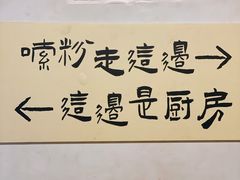 嗦粉走這邊→
←這邊是厨房